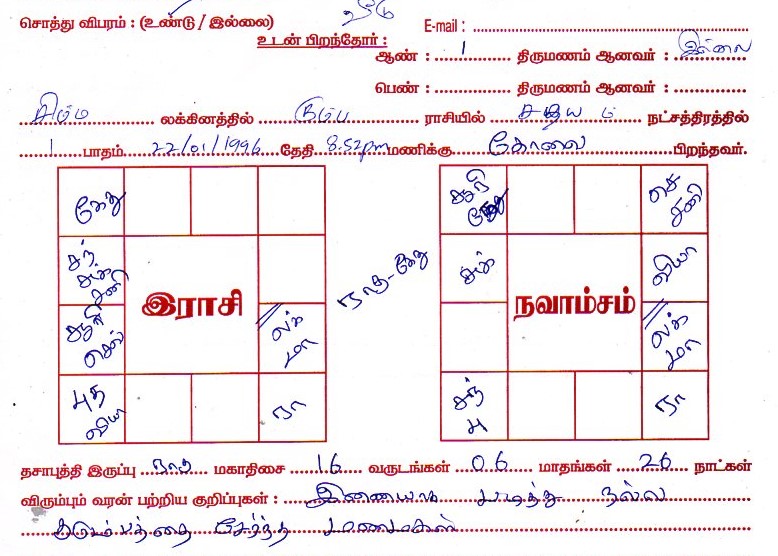 சொத்து விபரம் : (உண்டு / இல்லை) வீடு E-mail :
உடன் பிறந்தோர் :
ஆண் : 1 திருமணம் ஆனவர் : இல்லை
பெண் : திருமணம் ஆனவர் :
சிம்ம லக்கினத்தில் கும்ப ராசியில் சதயம் நட்சத்திரத்தில்
1 பாதம் 22/01/1996 தேதி 8.52pm மணிக்கு கோவை பிறந்தவர்.
கேது
சந் சுக் சனி
சூரி செவ்
புத வியா
இராசி
லக் மா
ரா
ராகு-கேது
சூரி கேது
செ சனி
சுக்
வியா
நவாம்சம்
லக் மா
சந் பு
ரா
தசாபுத்தி இருப்பு ராகு மகாதிசை 16 வருடங்கள் 06 மாதங்கள் 26 நாட்கள்
விரும்பும் வரன் பற்றிய குறிப்புகள் : இணையாக படித்த நல்ல
குடும்பத்தை சேர்ந்த மணமகள்